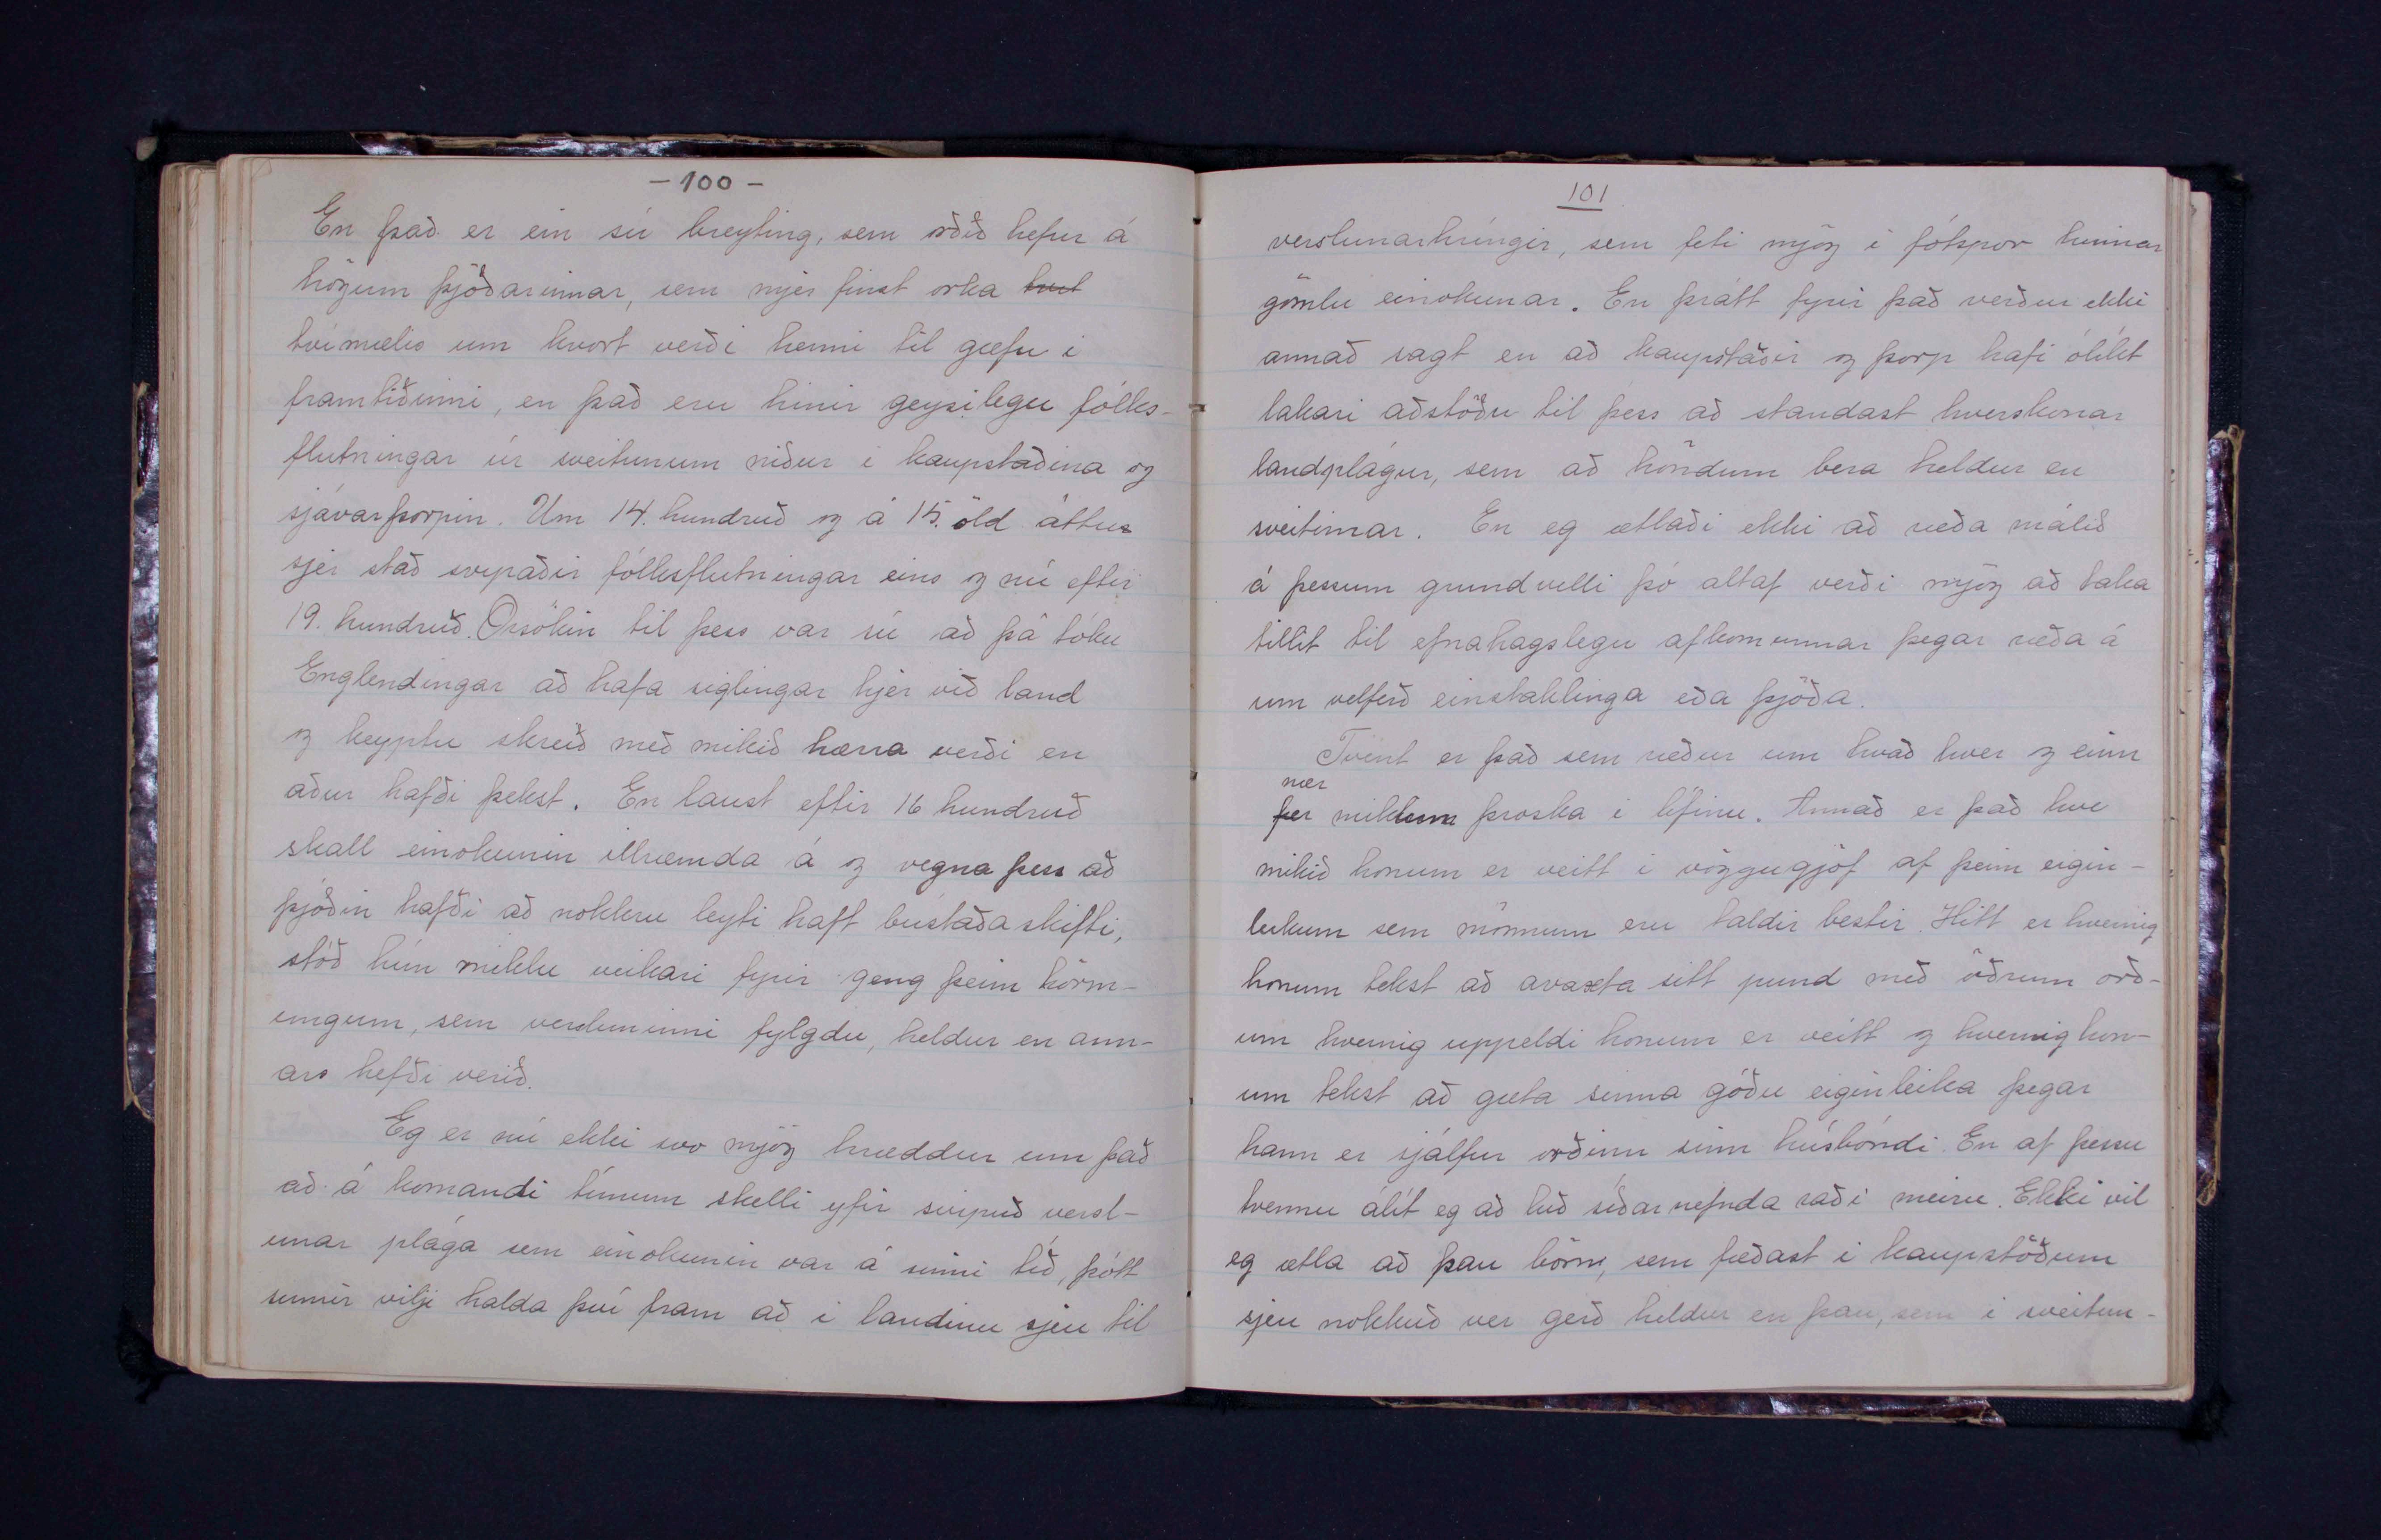 - 100 -
En það er ein sú breyting, sem orðið hefur á
högum þjóðarinnar, sem mjer finst orka
tvímælis um hvort verði henni til gæfu í
framtíðinni, en það eru hinir geysilegu fólks-
flutningar úr sveitunum niður í kaupstaðina og
sjávarþorpin. Um 14. hundruð og á 15. öld áttu
sjer stað svipaðir fólksflutningar eins og nú eftir
19. hundruð. Orsökin til þess var sú að þá tóku
Englendingar að hafa siglingar hjer við land
og keyptu skreið með mikið hærra verði en
áður hafði þekst. En laust eftir 16 hundruð
skall einokunin illræmda á og vegna þess að
þjóðin hafði að nokkru leyti haft bústaðaskifti,
stóð hún miklu veikari fyrir geng þeim hörm-
ungum, sem versluninni fylgdu, heldur en ann-
ars hefði verið.
Eg er nú ekki svo mjög hræddur um það
að á komandi tímum skelli yfir svipuð versl-
unar plága sem einokunin var á sinni tíð, þótt
sumir vilji halda því fram að í landinu sjeu til
101
verslunarhringir, sem feti mjög í fótspor hinnar
gömlu einokunar. En þrátt fyrir það verður ekki
annað sagt en að kaupstaðir og þorp hafi ólíkt
lakari aðstöðu til þess að standast hverskonar
landplágur, sem að höndum bera heldur en
sveitirnar. En eg ætlaði ekki að ræða málið
á þessum grundvelli þó altaf verði mjög að taka
tillit til efnahagslegu afkomunnar þegar ræða á
um velferð einstaklinga eða þjóða.
Tvent er það sem ræður um hvað hver og einn
nær
fær miklum þroska í lífinu. Annað er það hve
mikið honum er veitt í vöggugjöf af þeim eigin-
leikum sem mönnum eru taldir bestir. Hitt er hvernig
honum tekst að avaxta sitt pund með öðrum orð-
um hvernig uppeldi honum er veitt og hvernig hon-
um tekst að gæta sinna góðu eiginleika þegar
hann er sjálfur orðinn sinn húsbóndi. En af þessu
tvennu álít eg að hið síðarnefnda ráði meiru. Ekki vil
eg ætla að þau börn, sem fæðast í kaupstöðum
sjeu nokkuð ver gerð heldur en þau, sem í sveitun-